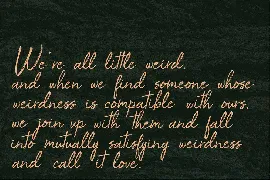 We're all little weird.
and when we find someone whose
weirdness is compatible with ours,
we join up with them and fall
into mutually satisfying weirdness
and call it love.